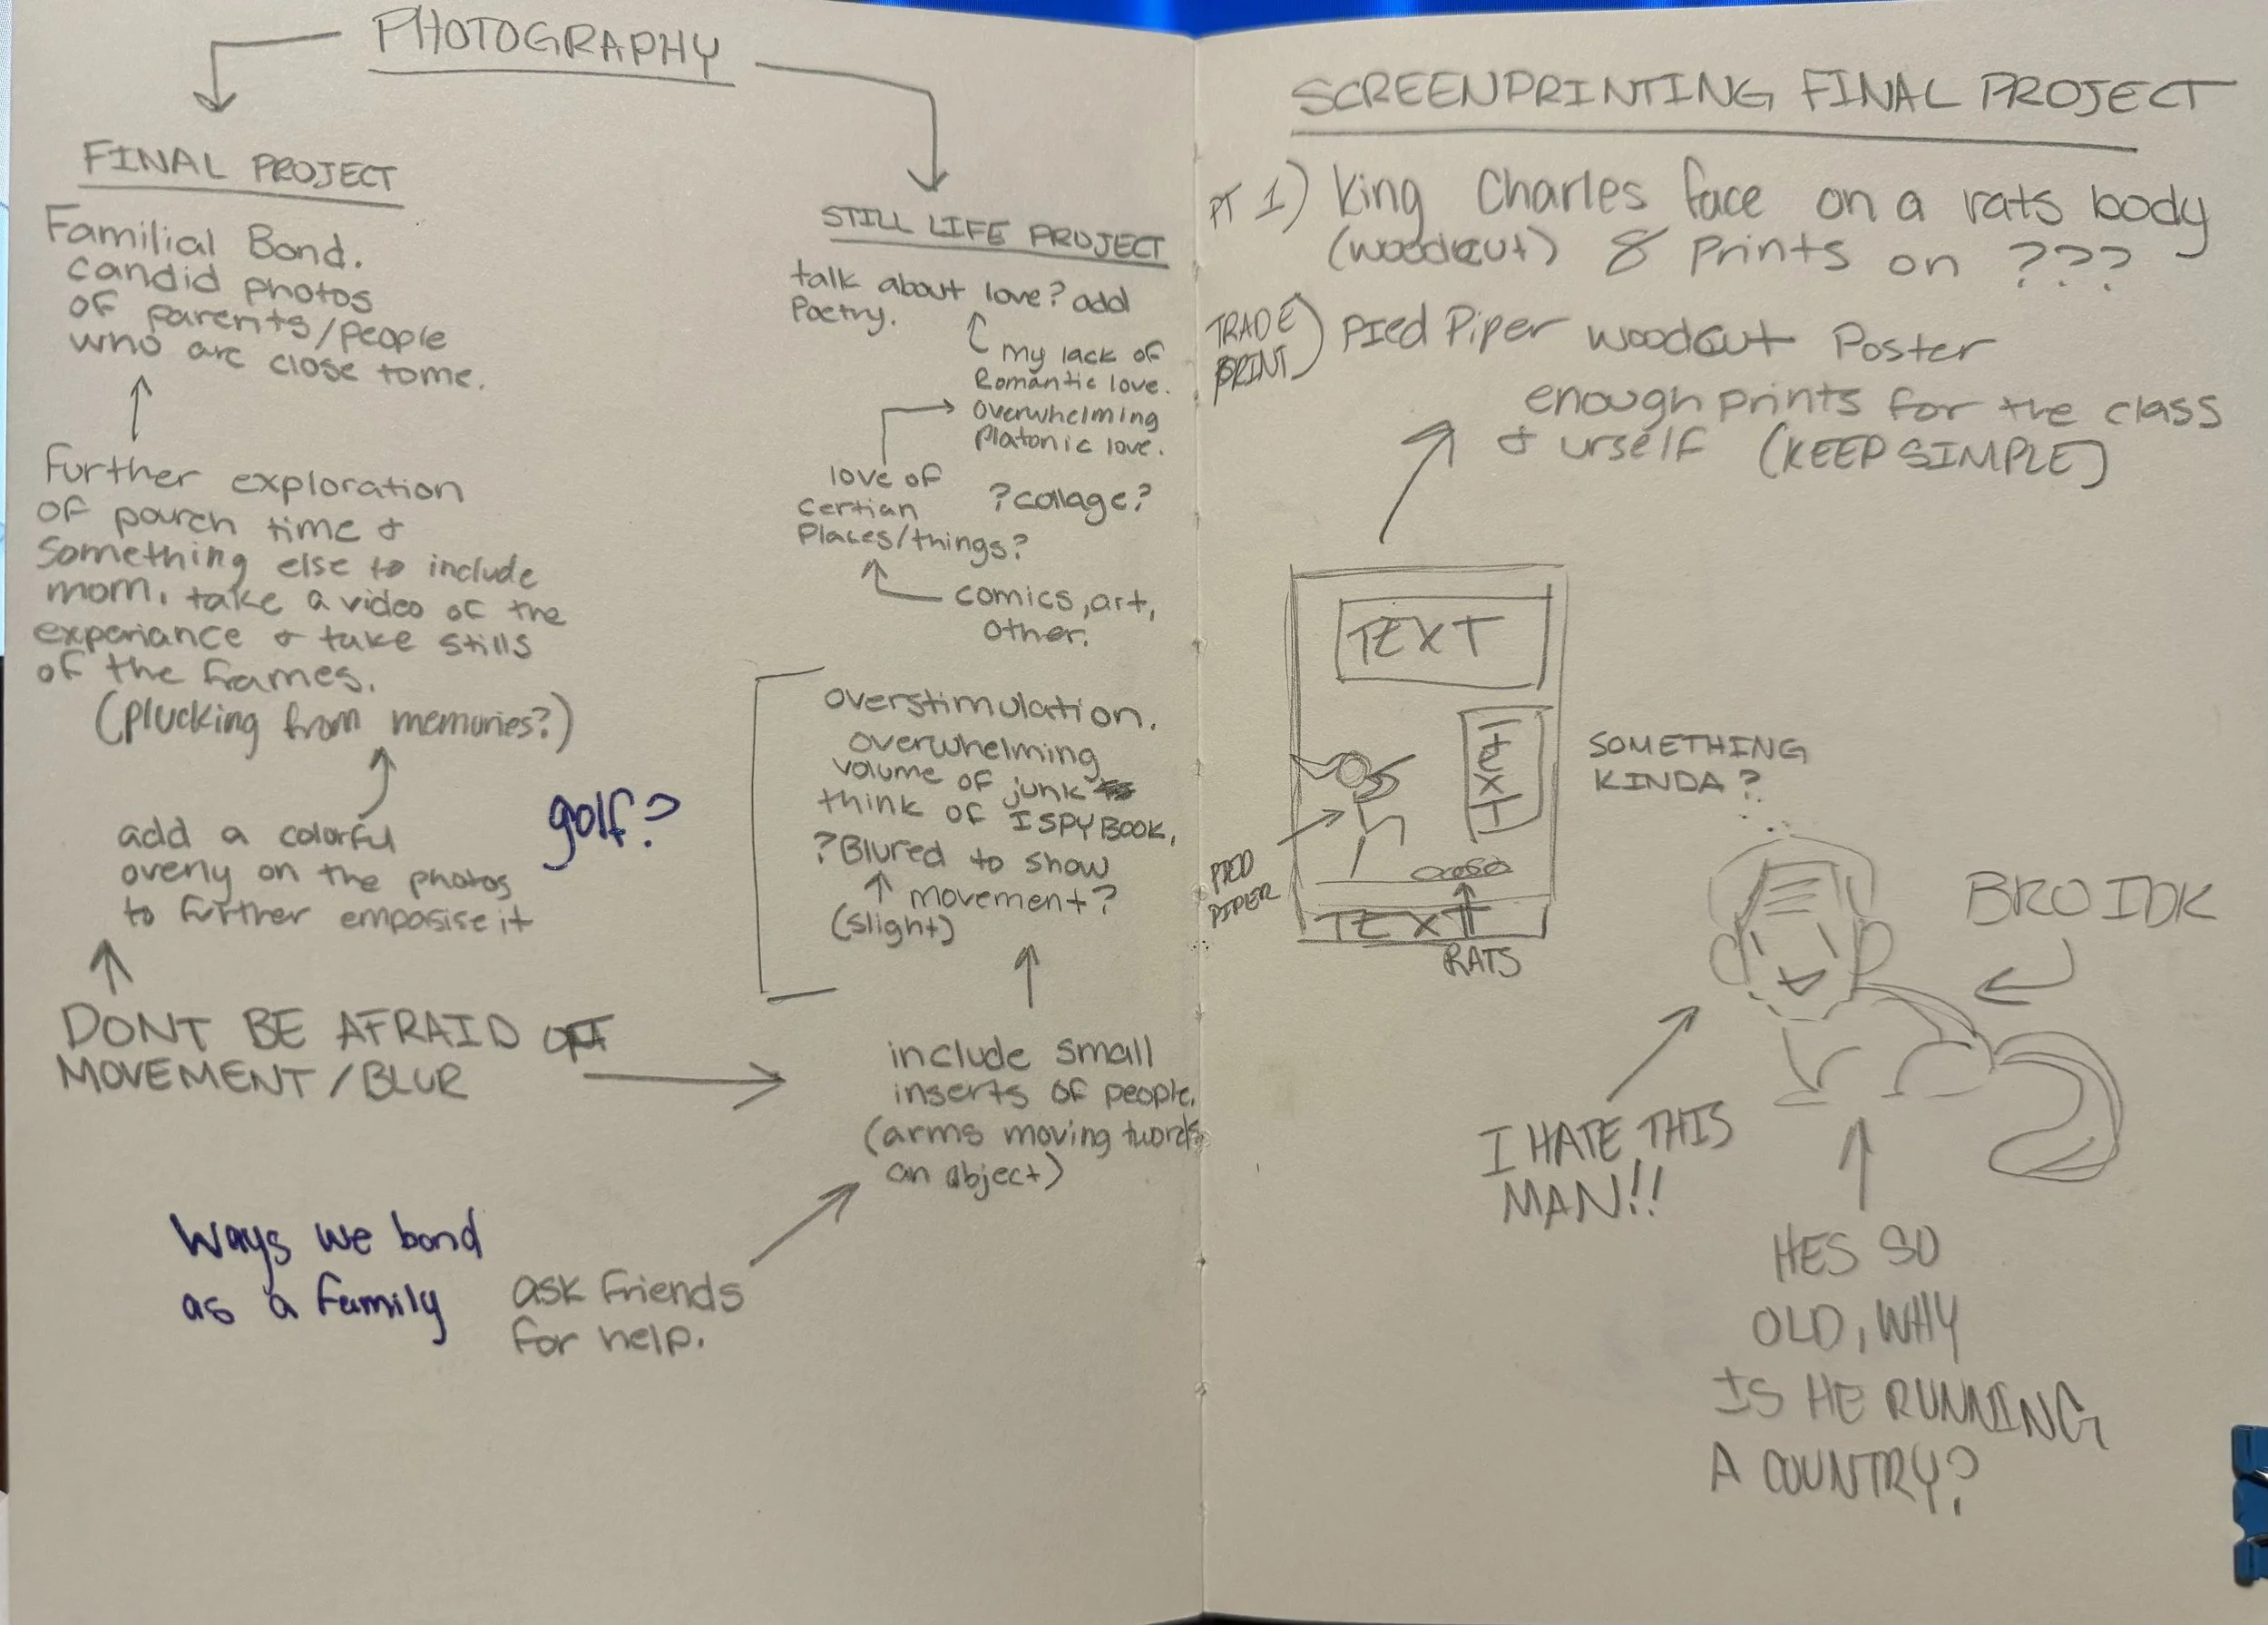 PHOTOGRAPHY
FINAL PROJECT
Familial Bond.
candid photos
of parents/people
who are close tome.
Further exploration
of pourch time &
Something else to include
mom, take a video of the
experiance & take stills
of the frames.
(plucking from memories?)
golf?
add a colorful
overly on the photos
to further empasise it
DONT BE AFRAID OF
MOVEMENT/BLUR
Ways we bond
as a family
ask friends
for help.
STILL LIFE PROJECT
talk about love? add
Poetry.
my lack of
Romantic love.
overwhelming
platonic love.
love of
certian
Places/things?
?collage?
comics, art,
other.
overstimulation.
overwhelming
volume of junk
think of I SPY BOOK,
?Blured to show
movement?
(slight)
include small
inserts of people.
(arms moving twords
an object)
SCREENPRINTING FINAL PROJECT
PT 1) King Charles face on a rats body
(woodcut) 8 prints on ???
TRADE
PRINT) PIed Piper woodcut Poster
enough prints for the class
& urself (KEEP SIMPLE)
TEXT
TEXT
TEXT
PIED
PIPER
RATS
SOMETHING
KINDA?
BRO IDK
I HATE THIS
MAN!!
HES SO
OLD, WHY
IS HE RUNNING
A COUNTRY?